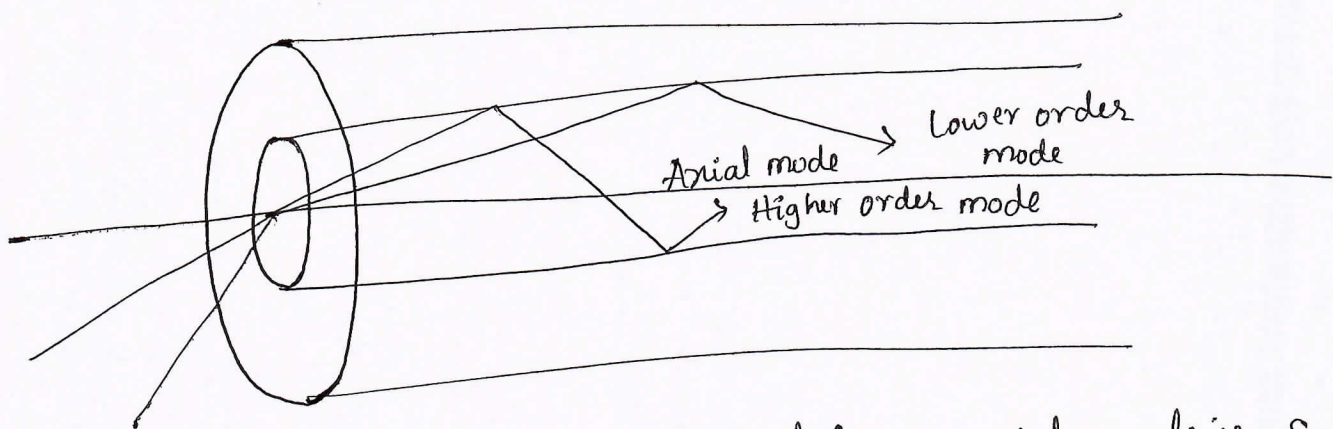 Lower order
mode
Axial mode
Higher order mode